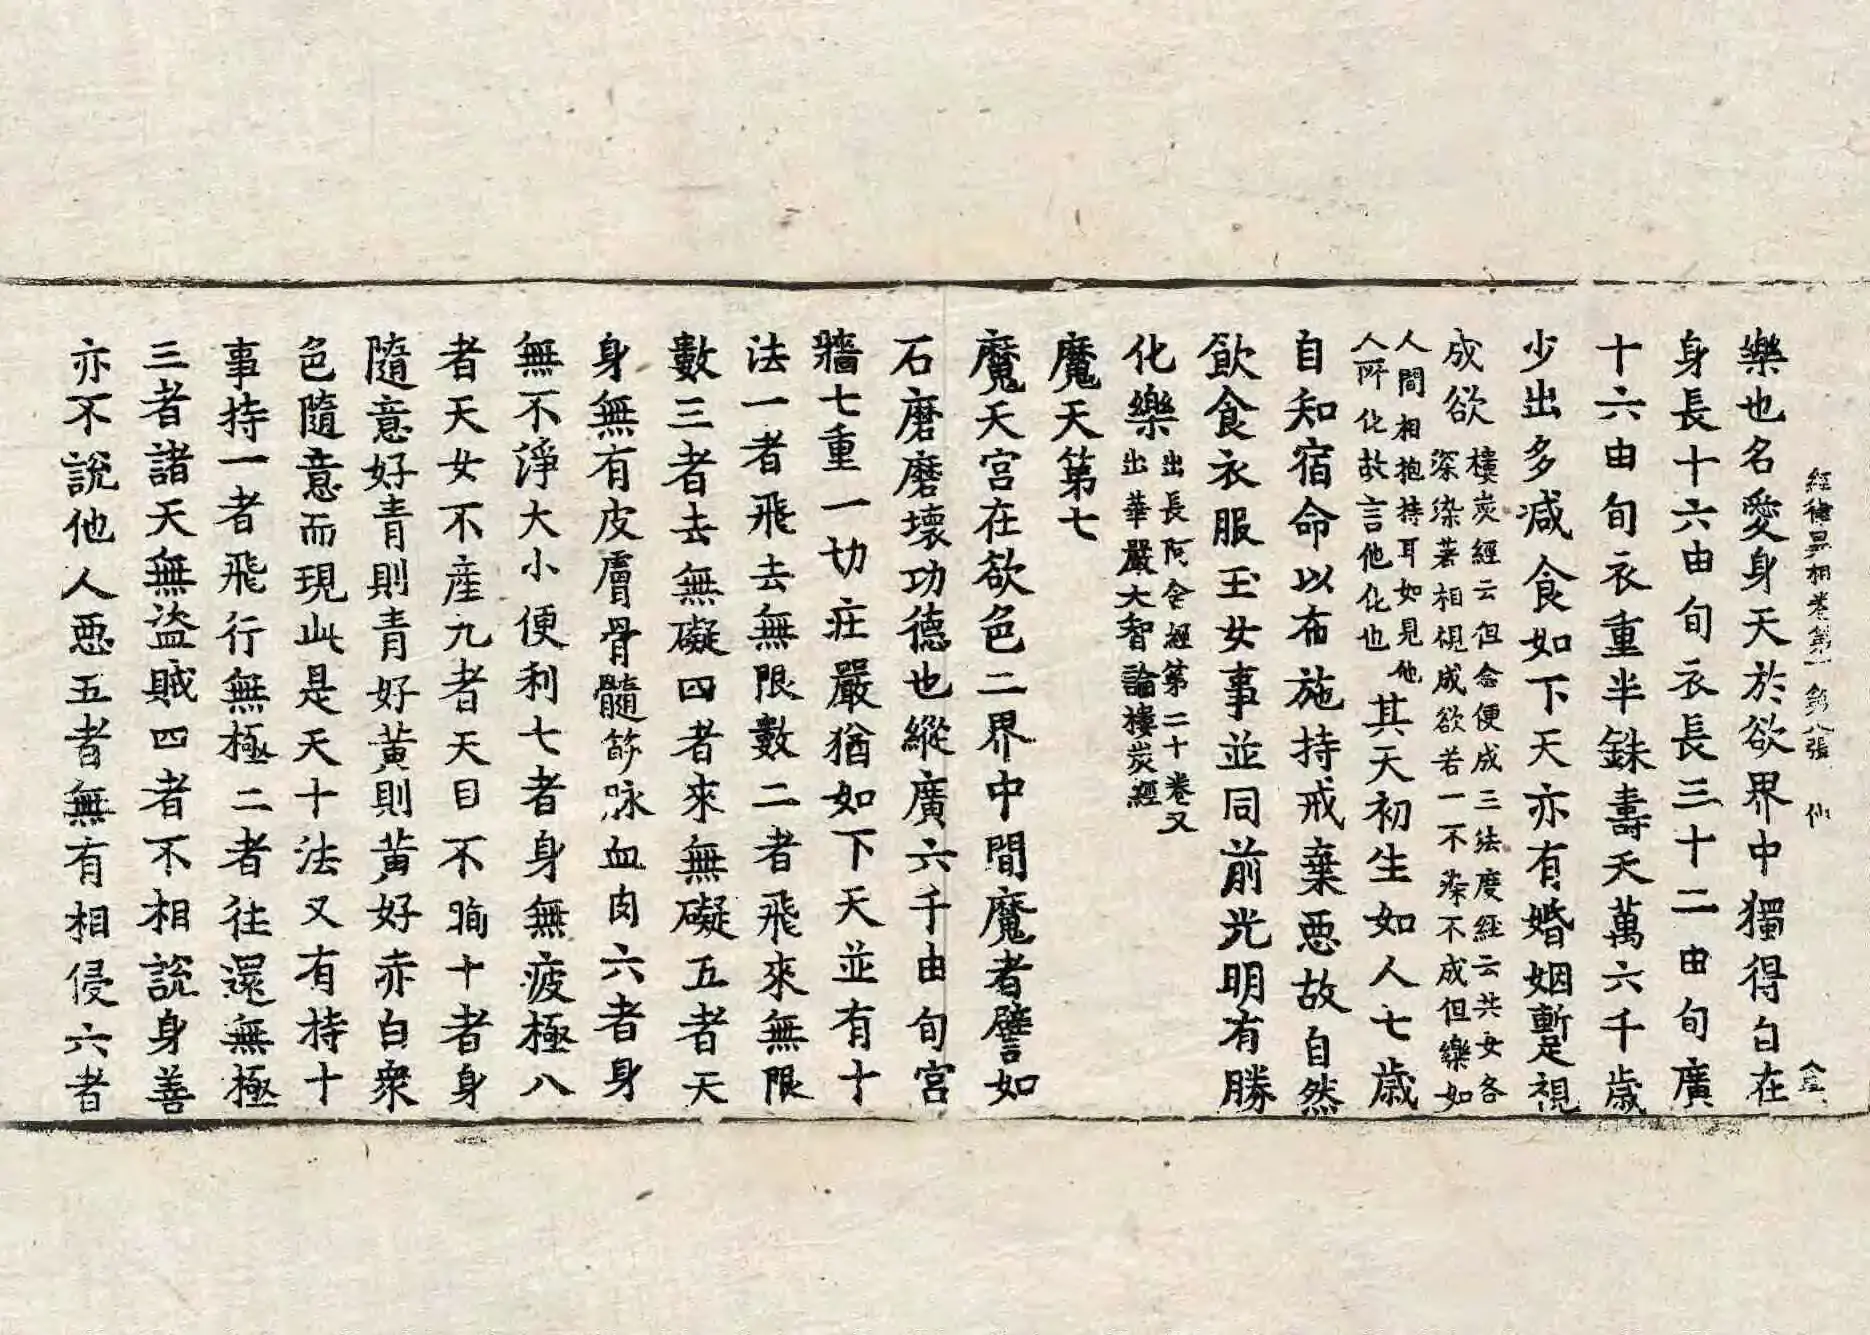 經律異相卷第一 第八張 仙
樂也名愛身天於欲界中獨得自在
身長十六由旬衣長三十二由旬廣
十六由旬衣重半銖壽天萬六千歲
少出多減食如下天亦有婚姻暫視
成欲樓炭經云但念便成三法度經云共女各
深染著相視成欲若一不染不成但樂如
人間相抱持耳如見他
人所化故言他化也其天初生如人七歲
自知宿命以布施持戒棄惡故自然
飲食衣服玉女事並同前光明有勝
化樂出長阿含經第二十卷又
出華嚴大智論樓炭經
魔天第七
魔天宮在欲色二界中間魔者譬如
石磨磨壞功德也縱廣六千由旬宮
牆七重一切莊嚴猶如下天並有十
法一者飛去無限數二者飛來無限
數三者去無礙四者來無礙五者天
身無有皮膚骨髓筋脉血肉六者身
無不淨大小便利七者身無疲極八
者天女不產九者天目不眴十者身
隨意好青則青好黃則黃好赤白衆
色隨意而現此是天十法又有持十
事持一者飛行無極二者往還無極
三者諸天無盜賊四者不相說身善
亦不說他人惡五者無有相侵六者